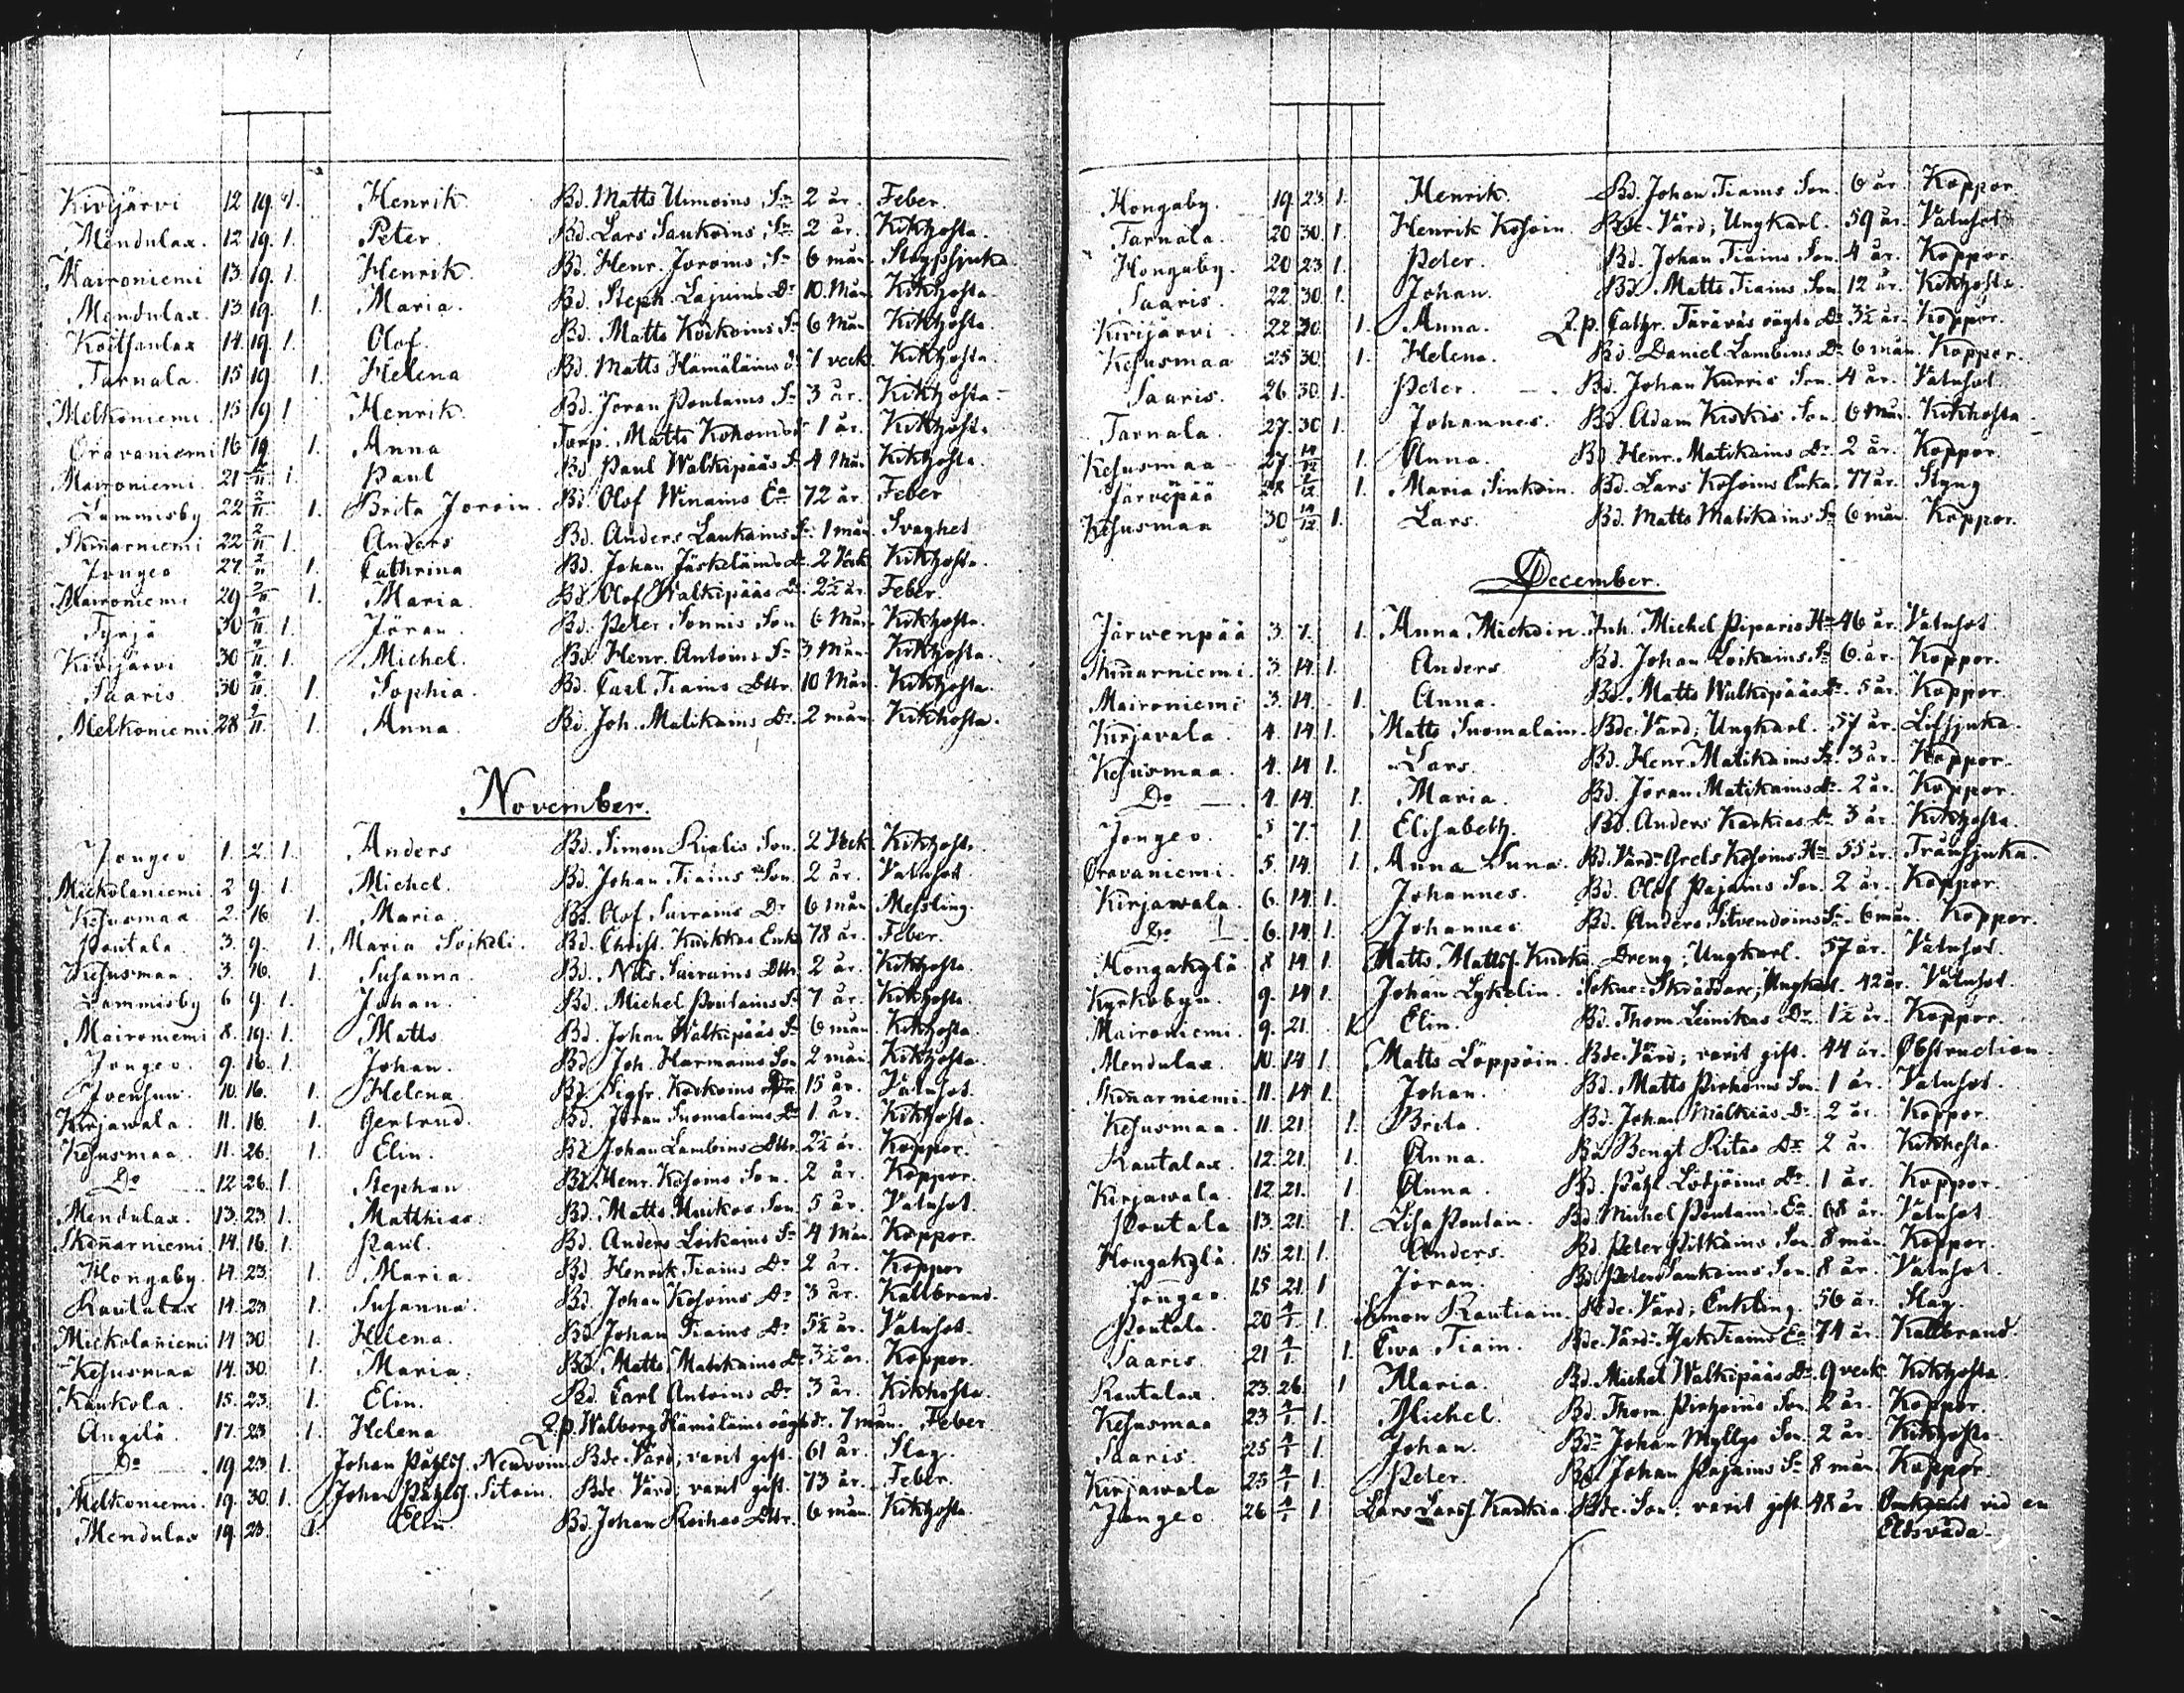 Kirijärvi 12 19. 1. Henrik Bd. Matts Uimoins Sn 2 år. Feber.
Mendulax. 12 19. 1. Peter. Bd. Lars Saukoins Sn 2 år. Kikhosta.
Maironiemi 13. 19. 1. Henrik Bd. Henr. Joroins Sn 6 mån.
Mendulax. 13. 19. 1. Maria. Bd. Steph. Lajuins Dr 10. Mån Kikhosta.
Koitsanlax 14. 19. 1. Olof. Bd. Matts Koikoins Sn 6 Mån Kikhosta.
Tarnala. 15 19 1. Helena Bd. Matts Hämäläins dr 7 veck. Kikhosta.
Melkoniemi 15 19 1 Henrik. Bd. Jöran Poutains Sn 3 år. Kikhosta
Oravaniemi 16 19 1. Anna Torp. Matts dr 1 år. Kikhosta
Maironiemi. 21 2/11 1 Paul Bd. Paul Walkipääs Sn 4 Mån Kikhosta.
Lammisby 22 2/11 1. Brita Joroin. Bd. Olof Winains Ea 72 år. Feber
Skinnarniemi 22 2/11 1. Anders Bd. Anders Laukains Sn 1 mån Svaghet
Jongeo 27. 2/11 1. Cathrina Bd. Johan Jäskeläins dr 2 Veck Kikhosta.
Maironiemi 29 2/11 1. Maria. Bd. Olof Walkipääs Dr 2½ år. Feber.
Tyrjä 30 2/11 1. Jöran. Bd. Peter Sonnis Son 6 Mån Kikhosta.
Kirijärvi 30 2/11 1. Michel. Bd. Henr. Antoins Sn 3 Mån. Kikhosta.
Saaris 30 2/11 1. Sophia. Bd. Carl Tiains Dttr 10 Mån. Kikhosta.
Melkoniemi 28 2/11 1. Anna. Bd. Joh. Matikains Dr 2 mån Kikhosta.
November.
Jongeo 1. 2. 1. Anders Bd. Simon Rialis Son. 2 Veck Kikhosta.
Mickolaniemi 2 9. 1. Michel. Bd. Johan Tiains Son. 2 år. Vatusot.
Kesusmaa 2. 16 1. Maria. Bd. Olof Suirains Dr 6 mån Messling.
Poutala. 3. 9. 1. Maria Soikeli. Bd. Christ. Kuikkas Enka 78 år. Feber.
Kesusmaa. 3. 16. 1. Susanna Bd. Nils. Suirains Dttr 2 år. Kikhosta
Lammisby 6 9. 1. Johan. Bd. Michel Poutains Sn 7 år. Kikhosta.
Maironiemi 8. 19. 1. Matts Bd. Johan Walkipääs Sn 6 mån Kikhosta.
Jongeo. 9. 16. 1 Johan. Bd. Joh. Harmains Son 2 mån. Kikhosta.
Joensuu. 10. 16. 1. Helena Bd. Sigfr. Koikoins Dr 15 år. Vatusot.
Kirjawala. 11. 16. 1. Gertrud. Bd. Jöran Suomalains Dr 1. år. Kikhosta.
Kesusmaa. 11. 26. 1. Elin. Bd. Johan Lamboins Dttr. 2½ år. Koppor.
Do 12 26. 1. Stephan Bd. Henr. Kosoins Son. 2 år. Koppor.
Mendulax. 13. 23. 1. Matthias. Bd. Matts Son 5 år. Vatusot.
Skinnarniemi. 14. 16. 1. Paul. Bd. Anders Loikains Sn 4 Mån Koppor.
Hongaby. 14. 23. 1. Maria. Bd. Henrik Tiains Dr 2 år. Koppor
Rautalax 14 23 1. Susanna. Bd. Johan Kosoins Dr 3 år. Kallbrand.
Mickolaniemi 14 30 1. Helena. Bd. Johan Tiains Dr 5½ år. Vatusot.
Kesusmaa 14. 30. 1. Maria. Bd. Matts Matikains Dr 3½ år. Koppor.
Kaukola. 15. 23. 1. Elin. Bd. Carl Antoins Dr 3 år. Kikhosta.
Angilä. 17. 23 1. Helena Q.p. Walborg Hämäläins oägta dr. 7 mån. Feber
Do 19 23 1. Johan Påhlss. Neuvoin. Bde. Värd; varit gift. 61 år. Slag.
Melkoniemi. 19. 30. 1. Johan Påhlss. Sitoin. Bde Värd; varit gift. 73 år. Feber.
Mendulax 19. 23. 1. Elin. Bd. Johan Roihas Dttr. 6 mån. Kikhosta.
Hongaby. 19 23 1. Henrik. Bd. Johan Tiains Son. 6 år. Koppor.
Tarnala. 20 30. 1. Henrik Kosoin. Bde. Värd; Ungkarl. 59 år. Vatusot
Hongaby. 20 23 1. Peter. Bd. Johan Tiains Son. 4 år. Koppor.
Saaris. 22. 30 1. Johan. Bd. Matts Tiains Son 12 år. Kikhosta.
Kirijärvi 22 30. 1. Anna. Q.p. Cathr. oägta Dr 3½ år. Koppor.
Kesusmaa 25 30. 1. Helena. Bd. Daniel Lamboins Dr 6 mån. Koppor.
Saaris. 26. 30. 1. Peter. Bd. Johan Kurris Son. 4 år. Vatusot
Tarnala. 27. 30 1. Johannes. Bd. Adam Kiskis Son. 6 Mån. Kikhosta
Kesusmaa 27. 14/12 1. Anna. Bd. Henr. Matikains Dr 2 år. Koppor
Järvepää 28 7/12 1. Maria Sinkoin. Bd. Lars Kosoins Enka. 77 år. Styng
Kesusmaa 30 14/12 1. Lars. Bd. Matts Matikains Sn 6 mån. Koppor.
December.
Järwenpää 3. 7. 1. Anna Mickoin. Inh. Michel Piparis Hu 46 år. Vatusot
Skinnarniemi. 3. 14. 1. Anders. Bd. Johan Loikains Sn 6. år. Koppor.
Maironiemi 3. 14. 1 Anna. Bd. Matts Walkipääs Dr 5 år. Koppor.
Kirjavala. 4. 14 1. Matts Suomalain. Bde. Värd; Ungkarl. 57 år.
Kesusmaa. 4. 14 1. Lars. Bd. Henr. Matikains Sn 3 år. Koppor.
Do 4. 14. 1. Maria. Bd. Jöran Matikains dr 2 år. Koppor.
Jongeo. 5 7. 1. Elisabeth. Bd. Anders Karkias Dr 3 år. Kikhosta.
Oravaniemi. 5. 14. 1. Anna Suna. Bd. Värd Grels Kosoins Hu 55 år. Trånsjuka.
Kirjawala. 6. 14. 1. Johannes. Bd. Olof Pajains Son. 2 år. Koppor.
Do 6. 14 1. Johannes. Bd. Anders Silvendoins Sn 6 mån. Koppor.
Hongakylä 8 14 1. Matts Mattss. Dreng; Ungkarl. 57 år. Vatusot.
Kyrkobyn. 9. 14 1. Johan Lykelin. Sokne-Skräddare; Ungkarl. 42 år. Vatusot.
Maironiemi. 9. 21. 1. Elin. Bd. Thom. Leinikas Dr 1½ år. Koppor.
Mendulax 10. 14 1. Matts Löppöin. Bde. Värd; varit gift. 44 år. Obstruction.
Skinnarniemi. 11. 14 1. Johan. Bd. Matts Pirhoins Son 1 år. Vatusot.
Kesusmaa. 11. 21 1. Brita. Bd. Johan Malkias Dr 2 år. Koppor.
Rautalax. 12. 21. 1. Anna. Bd. Bengt Ritas Dr 2 år. Kikhosta.
Kirjawala. 12. 21. 1 Anna. Bd. Påhl Dr 1 år. Koppor.
Poutala 13. 21. 1. Lisa Poutain. Bd. Michel Poutains Ea 68 år. Vatusot
Hongakylä. 15 21. 1. Anders. Bd. Peter Pitkäins Son 8 mån. Koppor
Jongeo. 15 21. 1 Jöran. Bd. Peter Saukoins Son. 8 år. Vatusot.
Poutala. 20 4/1 1. Simon Rautiain. Bde. Värd; Enkling. 56 år. Slag.
Saaris. 21 4/1. 1. Ewa Tiain. Bde. Värd Jak Tiains Ea 74 år. Kallbrand
Rautalax. 23. 26. 1 Maria. Bd. Michel Walkipääs Dr 9 veck Kikhosta.
Kesusmaa 23 4/1 1. Michel. Bd. Thom. Pirhoins Son. 2 år. Koppor.
Saaris. 25 4/1 1. Johan. Bd. Johan Myllys Son. 2 år. Kikhosta.
Kirjawala 25 4/1 1. Peter. Bd. Johan Pajains Sn 8 mån Koppor.
Jongeo. 26 4/1 1. Lars Larss. Karkia. Bde. Son; varit gift. 48 år. Omkomit vid en
Eldsvåda.